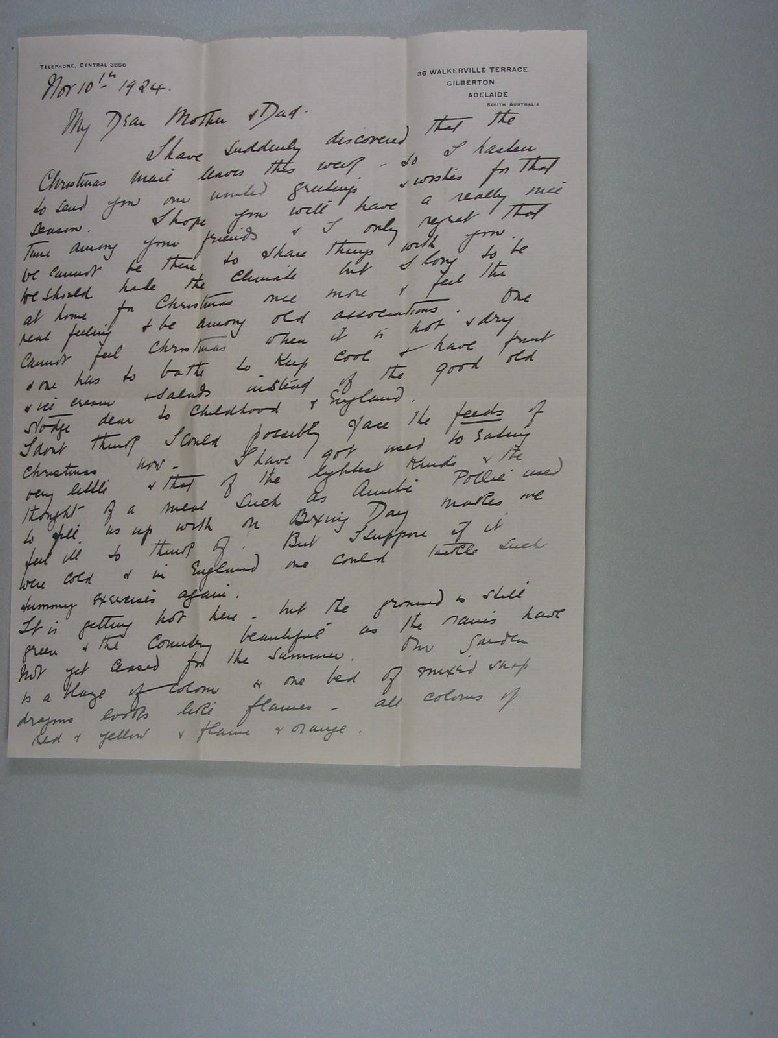 TELEPHONE, CENTRAL 3256
36 WALKERVILLE TERRACE
GILBERTON
ADELAIDE
SOUTH AUSTRALIA
Nov 10th 1924.
My Dear Mother & Dad.
I have suddenly discovered that the
Christmas mail leaves this week - so I hasten
to send you our united greetings & wishes for that
season. I hope you will have a really nice
time among your friends & I only regret that
we cannot be there to share things with you.
We should hate the climate but I long to be
at home for Christmas once more & feel the
real feeling & be among old associations. One
cannot feel Christmas when it is hot & dry
& one has to bathe to keep cool & have fruit
& ice cream & salads instead of the good old
stodge dear to childhood & England.
I dont think I could possibly face the feeds of
Christmas now. I have got used to eating
very little & that of the lightest kinds & the
thought of a meal such as Auntie Pollie used
to fill us up with on Boxing Day makes me
feel ill to think of. But I suppose if it
were cold & in England one could tackle such
tummy exercises again.
It is getting hot here - but the ground is still
green & the country beautiful as the rains have
not yet ceased for the summer. Our garden
is a blaze of colour & one bed of mixed snap
dragons looks like flames - all colours of
red & yellow & flame & orange.